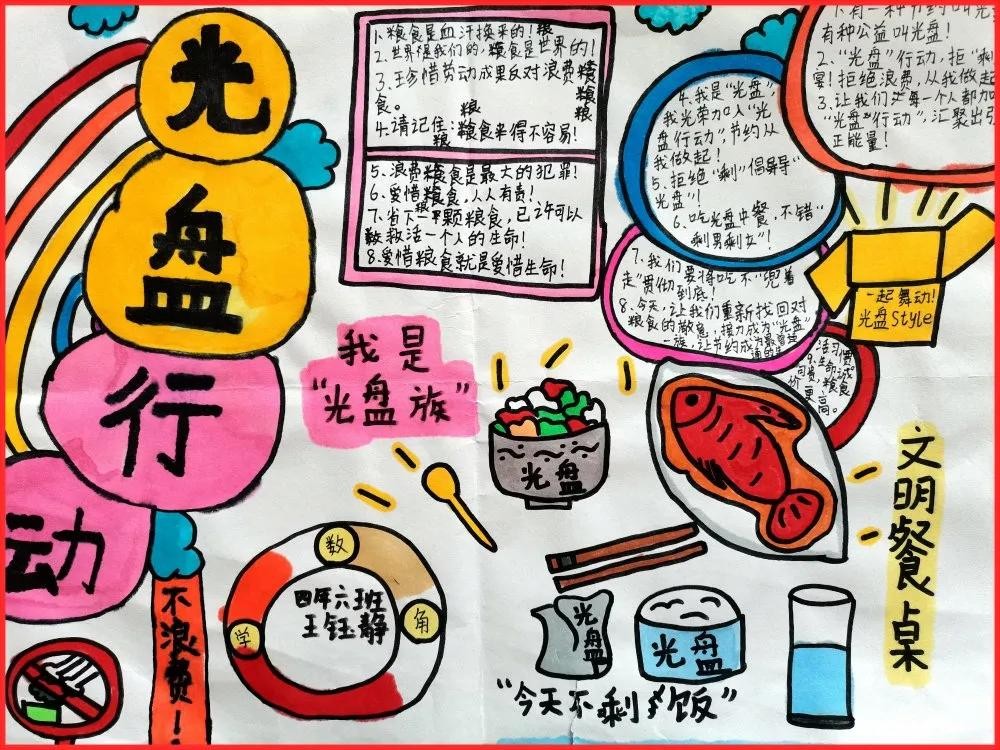 光
盘
行
动
1、粮食是血汗换来的!
2、世界是我们的,粮食是世界的!
3、珍惜劳动成果反对浪费粮
食。
4、请记住:粮食来得不容易!
5、浪费粮食是最大的犯罪!
6、爱惜粮食,人人有责!
7、省下一颗粮食,已许可以
救活一个人的生命!
8、爱惜粮食就是爱惜生命!
有种公益叫光盘!
2、“光盘”行动,拒“剩
宴!拒绝浪费,从我做起
3、让我们每一个人都加
“光盘”行动”,汇聚出
正能量!
4、我是“光盘”,
我光荣加入“光
盘行动”,节约从
我做起!
5、拒绝“剩”倡导导“
光盘”!
6、吃光盘中餐,不错“
剩男剩女”!
7、我们要将吃不“兜着
走”贯彻到底!
8、今天,让我们重新找回对
粮食的敬意,接力成为“光盘”
一族,让节约成为最
一起舞动!
光盘Style
我是
“光盘族”
光盘
文明餐桌
不浪费!
数
学
角
四年六班
王钰静
光盘
光盘
“今天不剩饭”